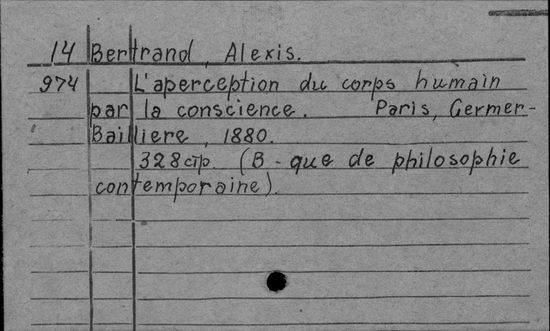 14 Bertrand, Alexis.
974 L'aperception du corps humain
par la conscience. Paris, Germer-
Bailliere, 1880.
328 стр (B-que de philosophie
contemporaine).